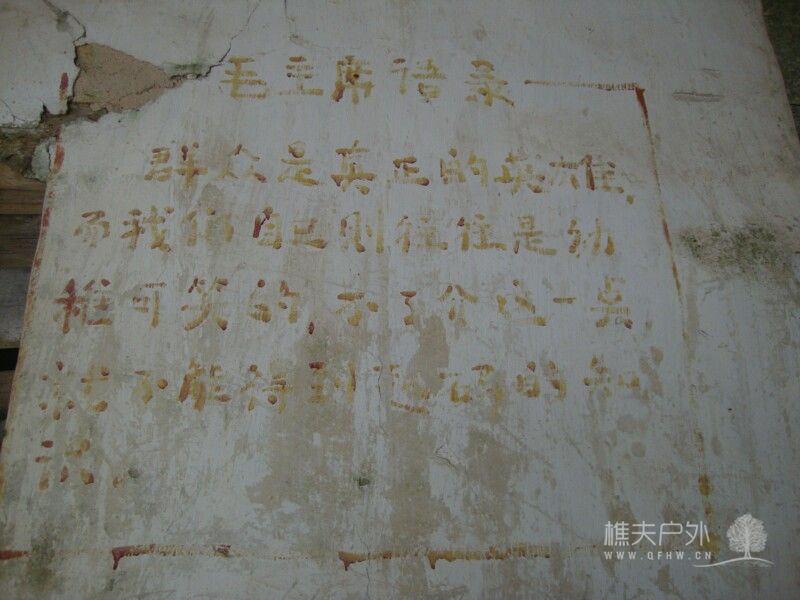 毛主席语录
群众是真正的英雄,
而我们自己则往往是幼
稚可笑的,不了介这一点,
就不能得到起码的知
识。
樵夫户外
WWW.QFHW.CN